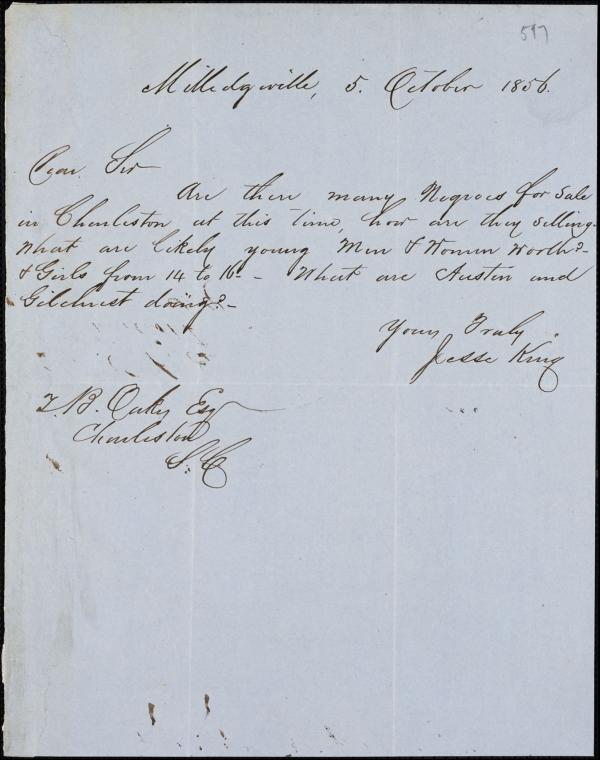 597
Milledgville, 5. October 1856.
Dear Sir
Are there many Negroes for Sale
in Charleston at this time, how are they selling.
What are likely young Men & Women worth?-
& Girls from 14 to 16- - What are Austin and
Gilchrist doing?-
Yours Truly
Jesse King
Z. B. Oakes Esqr
Charleston
S. C